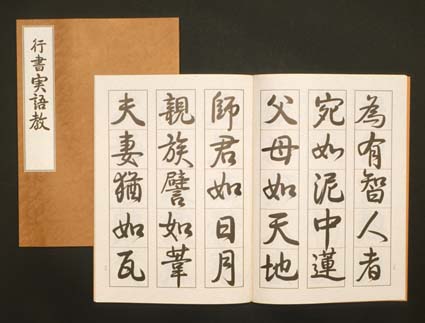 行書実語教
為有智人者
宛如泥中蓮
父母如天地
師君如日月
親族譬如葦
夫妻猶如瓦